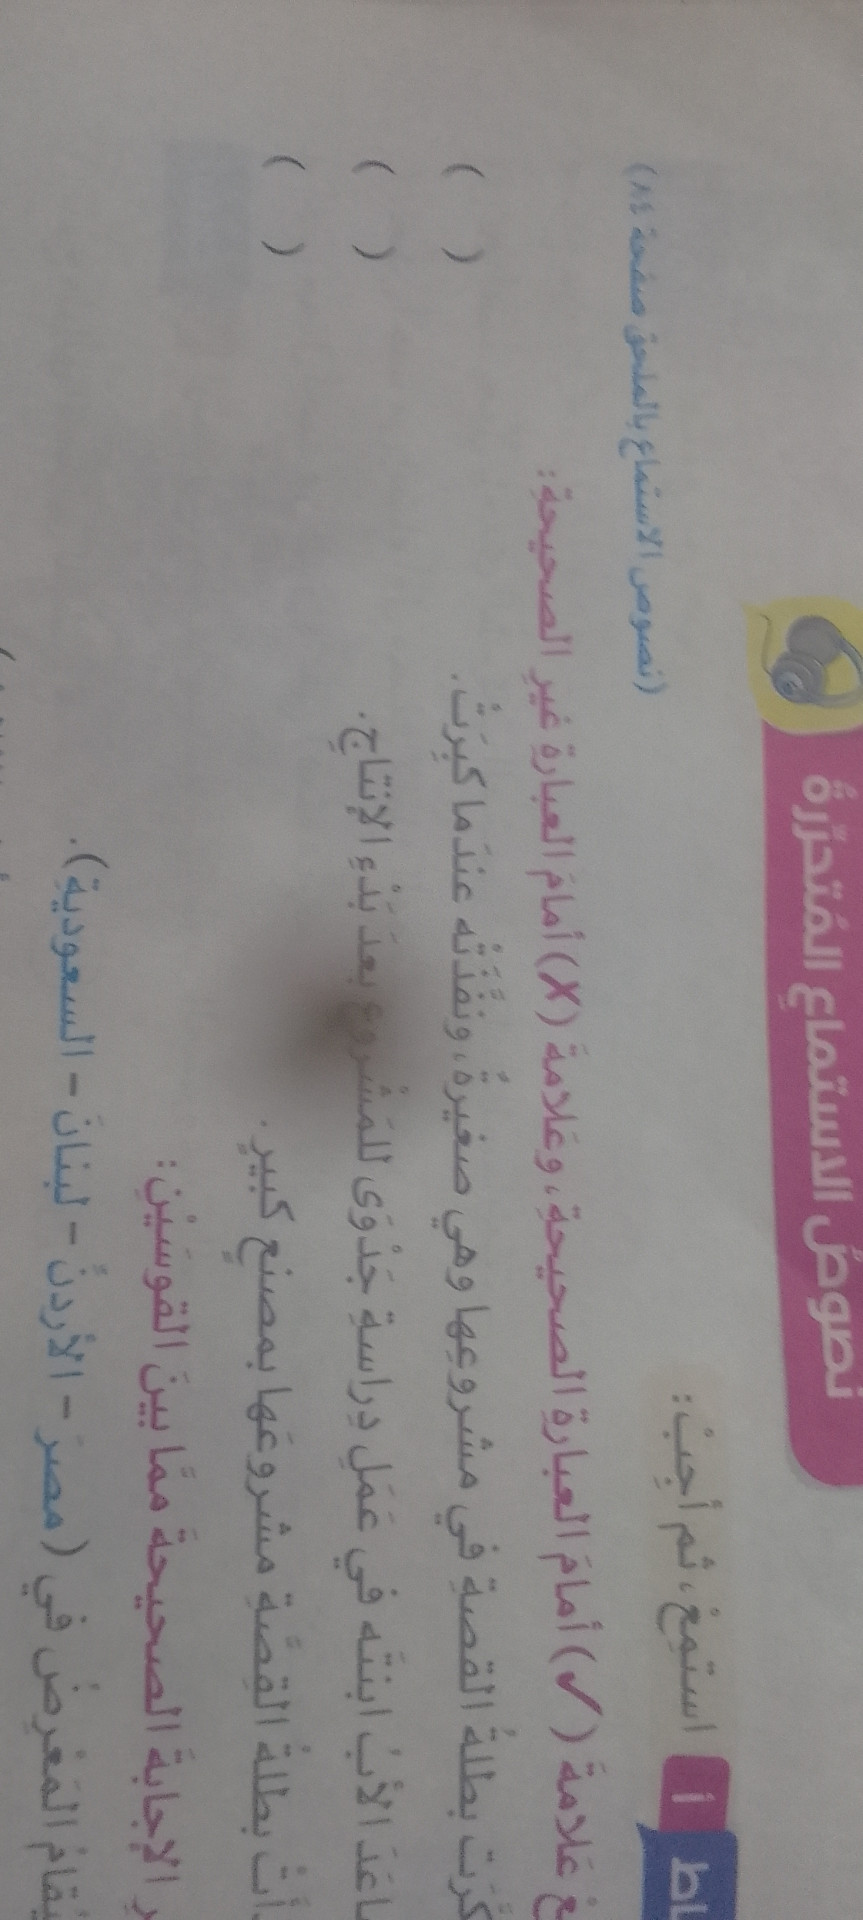 نصوصُ الاستماعِ المُتحرِّرةُ
أ استمِعْ، ثم أَجِبْ:
(نصوص الاستماع بالملحق صفحة ٨٤)
عَلامةَ (✓) أمامَ العبارةِ الصحيحةِ، وعَلامةَ (X) أمامَ العبارةِ غيرِ الصحيحةِ:
بطلةُ القصةِ في مشروعِها وهي صغيرةٌ، ونفَّذَتْه عندَما كبِرَتْ. ( )
الأبُ ابنتَه في عَمَلِ دراسةِ جَدْوَى للمَشْروعِ بعدَ بَدْءِ الإنتاجِ. ( )
بطلةُ القِصَّةِ مشروعَها بمصنعٍ كبيرٍ. ( )
الإجابةَ الصحيحةَ ممَّا بينَ القوسَيْنِ:
يُقامُ المَعْرِضُ في (مصرَ - الأردنِّ - لبنانَ - السعوديةِ).